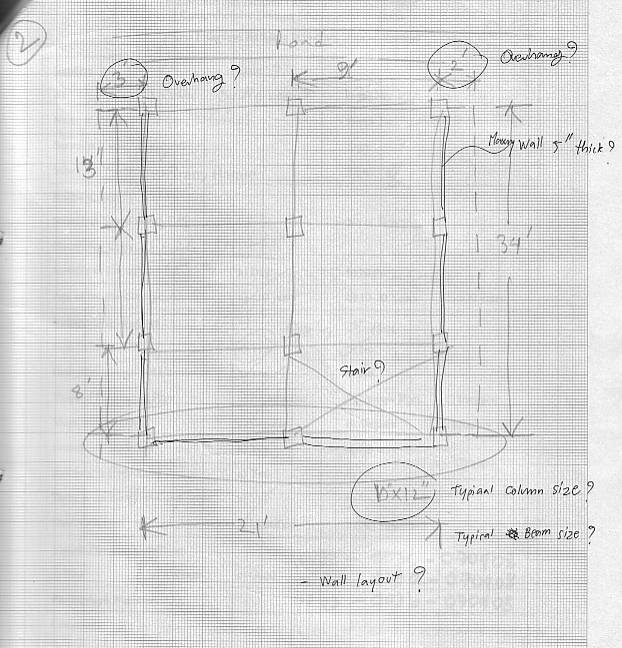 2
Road
3' Overhang?
9'
2' Overhang?
Masonry Wall 5" thick?
13"
34'
Stair?
8'
10"x12" Typical column size?
21'
Typical Beam size?
- Wall layout?